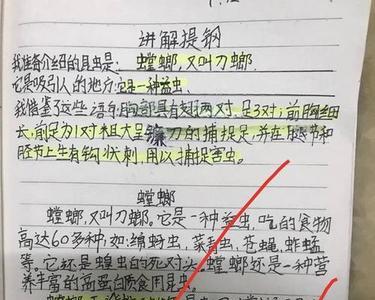 讲解提纲
我准备介绍的昆虫是：螳螂,又叫刀螂.
它是吸引人的地方:它是一种益虫.
我借鉴了这些语句:胸部具有翅两对,足3对;前胸细
长,前足为1对粗大呈镰刀的捕捉足,并在腿节和
胫节上生有钩状刺,用以捕捉害虫。
螳螂
螳螂,又叫刀螂。它是一种益虫,吃的食物
高达60多种,如:绵蚜虫、菜青虫、苍蝇、蚱蜢
等。它还是蝗虫的死对头。螳螂还是一种营
养丰富的高蛋白质食用昆虫。